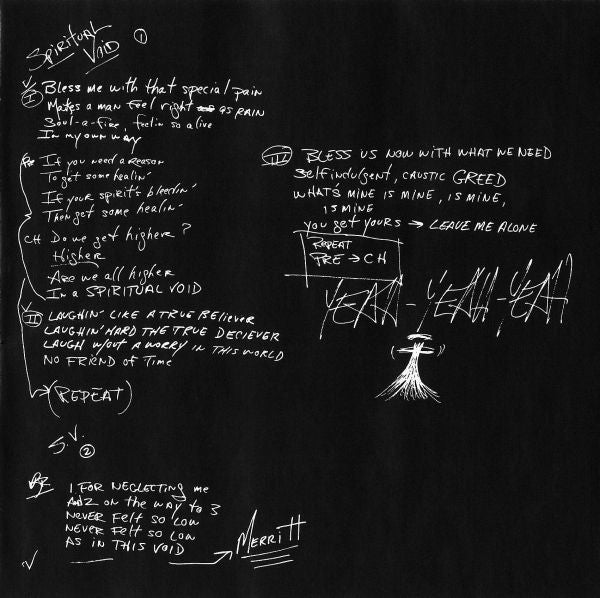 SPIRITUAL VOID 1
V
I Bless me with that special pain
Makes a man feel right as RAIN
Soul-a-fire, feelin so alive
In my own way
Pre If you need a reason
To get some healin'
If your spirit's bleedin'
Then get some healin'
CH Do we get higher?
Higher
Are we all higher
In a SPIRITUAL VOID
V
II LAUGHIN' LIKE A TRUE BELIEVER
LAUGHIN' HARD THE TRUE DECIEVER
LAUGH W/OUT A WORRY IN THIS WORLD
NO FRIEND OF TIME
(REPEAT)
S.V. 2
1 FOR NEGLECTING me
2 on the way to 3
NEVER FELT SO LOW
NEVER FELT SO LOW
AS IN THIS VOID
MERRITT
III BLESS US NOW WITH WHAT WE NEED
Self indulgent, CAUSTIC GREED
WHAT'S MINE IS MINE, IS MINE,
IS MINE
you get YOURS → LEAVE ME ALONE
REPEAT
PRE → CH
YEAH - YEAH - YEAH